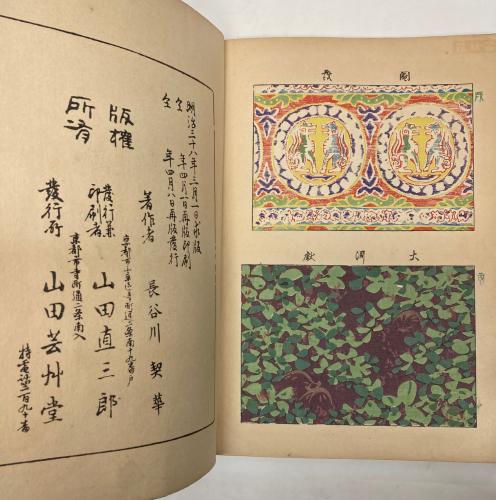 明治三十八年三月一日求版
全 年四月一日再版印刷
全 年四月八日再版發行
著作者 長谷川契華
發行兼印刷者 山田直三郎
京都市
發行所 山田芸艸堂
京都市寺町通二条南入
特電話二百九十番
版權所有
圖
大洞獻